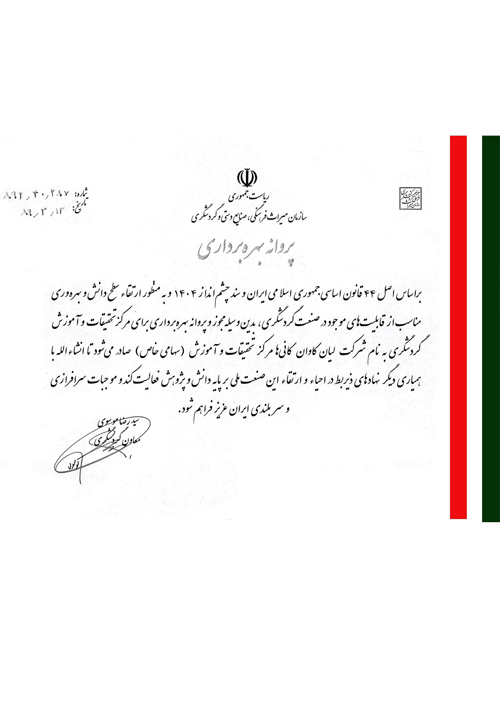 ریاست جمهوری
سازمان میراث فرهنگی، صنایع دستی و گردشگری
شماره: ۸۹۲,۴۰,۲۸۷
تاریخ: ۸۹,۳,۱۳
پروانه بهره برداری
براساس اصل ۴۴ قانون اساسی جمهوری اسلامی ایران و سند چشم انداز ۱۴۰۴ و به منظور ارتقاء سطح دانش و بهره وری
مناسب از قابلیت های موجود در صنعت گردشگری، بدین وسیله مجوز و پروانه بهره برداری برای مرکز تحقیقات و آموزش
گردشگری به نام شرکت لیان کاوان کانی ها مرکز تحقیقات و آموزش (سهامی خاص) صادر می شود تا انشاء الله با
همیاری دیگر نهادهای ذیربط در احیاء و ارتقاء این صنعت ملی بر پایه دانش و پژوهش فعالیت کند و موجبات سرافرازی
و سربلندی ایران عزیز فراهم شود.
سید رضا موسوی
معاون گردشگری